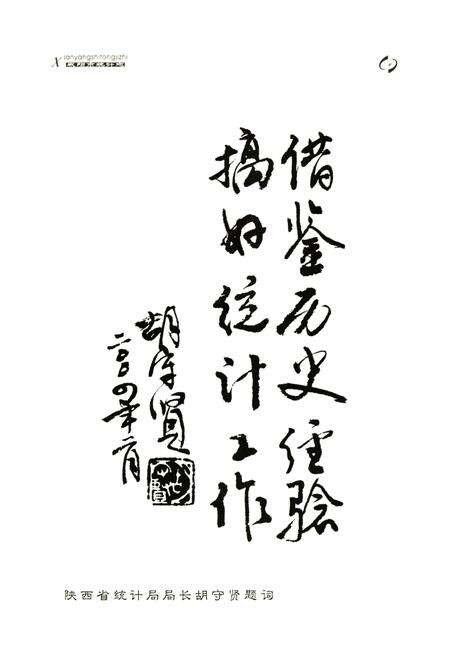 Xianyangshitongjizhi
咸阳市统计志
借鉴历史经验
搞好统计工作
胡守贤
二〇〇四年二月
陕西省统计局局长胡守贤题词